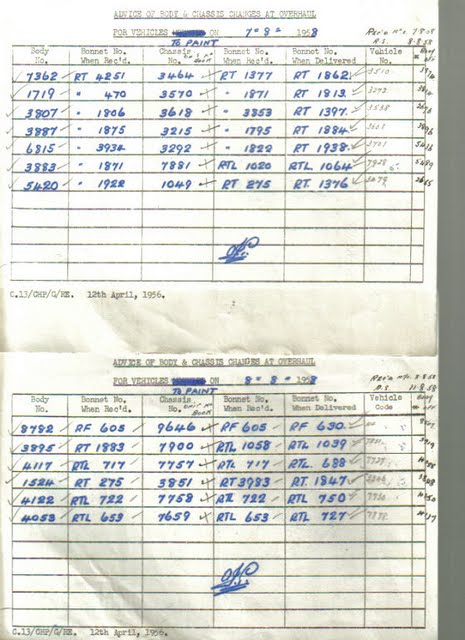 ADVICE OF BODY & CHASSIS CHANGES AT OVERHAUL
FOR VEHICLES ON 7·8· 1958 Rec'd 7.8.58
TO PAINT 8.8.58
Body No. Bonnet No. When Rec'd. Chassis No. Bonnet No. When Delivered Vehicle No. Body off
7362 RT 4251 3464 RT 1377 RT 1862 3510
1719 " 470 3570 " 1871 RT 1813 3272
3807 " 1806 3618 " 3353 RT 1397 3538
3887 " 1875 3215 " 1795 RT 1884
6815 " 3934 3292 " 1822 RT 1938 3721
3883 " 1871 7881 RTL 1020 RTL 1064 7928
5420 " 1922 1049 RT 275 RT 1376
C.13/CHP/G/HE. 12th April, 1956.
ADVICE OF BODY & CHASSIS CHANGES AT OVERHAUL
FOR VEHICLES ON 8·8· 1958 Rec'd 8.8.58
TO PAINT 11.8.58
Body No. Bonnet No. When Rec'd. Chassis No. Bonnet No. When Delivered Vehicle Code Body off
8782 RF 605 9646 RF 605 RF 630
3895 RT 1883 7900 RTL 1058 RTL 1039
4117 RTL 717 7757 RTL 717 RTL 688
1524 RT 275 3851 RT 3983 RT 1847
4122 RTL 722 7758 RTL 722 RTL 750
4053 RTL 653 7659 RTL 653 RTL 727
C.13/CHP/G/HE. 12th April, 1956.